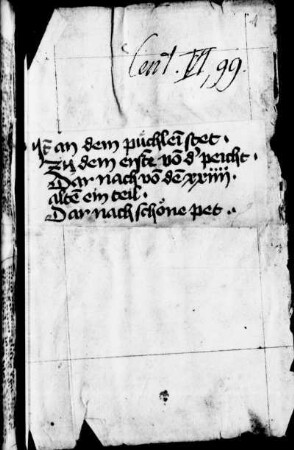 Cent. VI, 99.
Itē an dem puchleī stet ·
Zu dem erstē vō d' peicht ·
Dar nach vō dē xxiiii ·
altē ein teil ·
Dar nach schöne pet ··